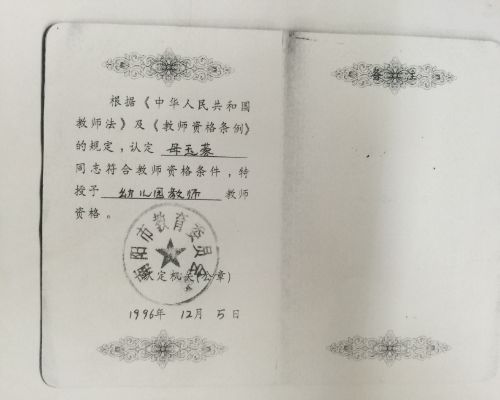 根据《中华人民共和国
教师法》及《教师资格条例》
的规定,认定 母玉蓁
同志符合教师资格条件,特
授予 幼儿园教师 教师
资格。
阳市教育委员会
认定机关(公章)
1996年 12月 5日
备注